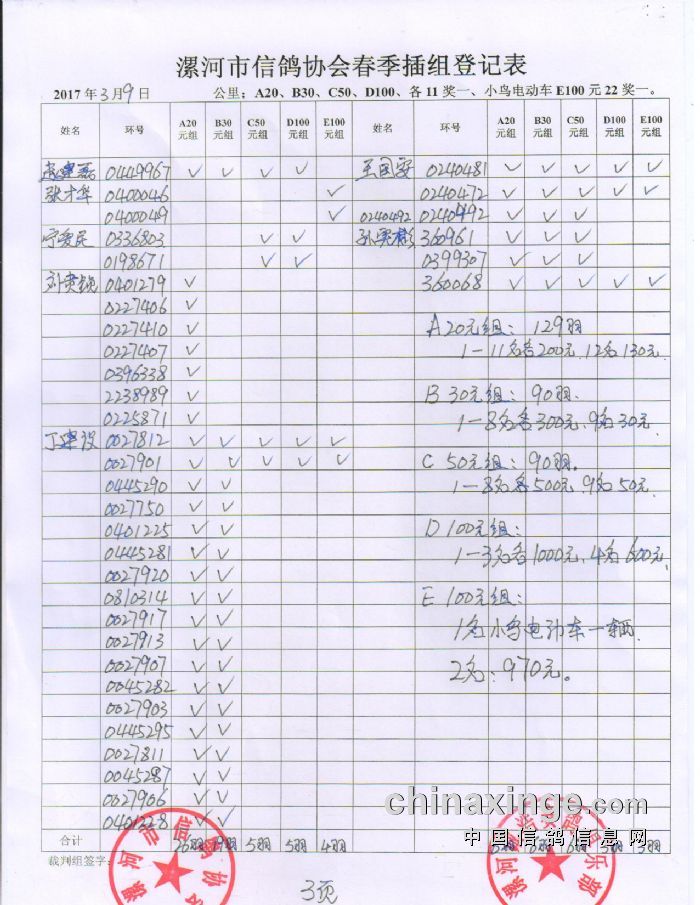 漯河市信鸽协会春季插组登记表
2017 年 3月9日 公里：A20、B30、C50、D100、各 11 奖一、小鸟电动车 E100 元 22 奖一。
姓名 环号 A20元组 B30元组 C50元组 D100元组 E100元组 姓名 环号 A20元组 B30元组 C50元组 D100元组 E100元组
0449967 ✓ ✓ ✓ ✓ 王国安 0240481 ✓ ✓ ✓ ✓ ✓
张才华 0400046 ✓ 0240472 ✓ ✓ ✓ ✓ ✓
0400049 ✓ 0240492 0240492 ✓ ✓ ✓
宁爱民 0336803 ✓ ✓ 360961 ✓ ✓ ✓
0198671 ✓ ✓ 0399307 ✓ ✓ ✓
0401279 ✓ 360068 ✓ ✓ ✓ ✓ ✓
0227406 ✓
0227410 ✓ A 20元组： 129羽
0227407 ✓ 1-11名各200元，12名130元
0396338 ✓
2238989 ✓ B 30元组： 90羽.
0225871 ✓ 1-8名各300元，9名30元.
丁建设 0027812 ✓ ✓ ✓ ✓ ✓
0027901 ✓ ✓ ✓ ✓ ✓ C 50元组： 90羽。
0445290 ✓ ✓ 1-8名各500元，9名50元.
0027750 ✓ ✓
0401225 ✓ ✓ D 100元组：
0445281 ✓ ✓ 1-3名各1000元，4名600元.
0027920 ✓ ✓
0810314 ✓ ✓ E 100元组：
0027917 ✓ ✓ 1名小鸟电动车一辆.
0027913 ✓ ✓
0027907 ✓ ✓ 2名：970元。
0045282 ✓ ✓
0027903 ✓ ✓
0445295 ✓ ✓
0027811 ✓ ✓
0045287 ✓ ✓
0027906 ✓ ✓
0401228 ✓ ✓
chinaxinge.com
中国信鸽信息网
合计 26羽 19羽 5羽 5羽 4羽 6羽 6羽 3羽 3羽
裁判组签字：
漯河市信鸽协
漯河 俱乐部
3页